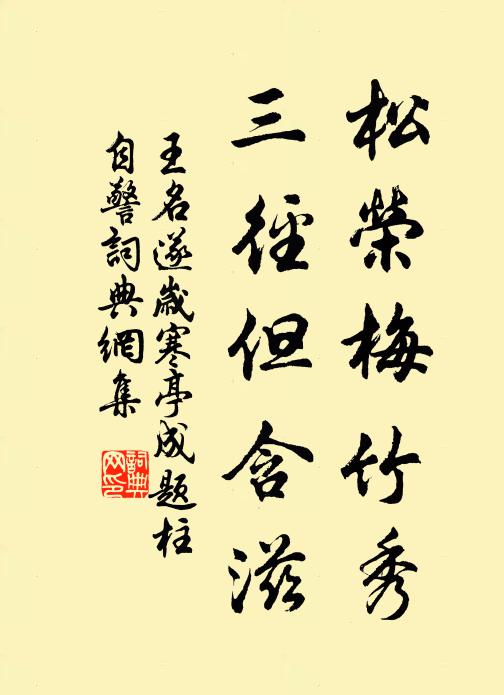 松榮梅竹秀
三徑但含滋
王名遂歲寒亭成題柱
自警詞典網集
詞典網印